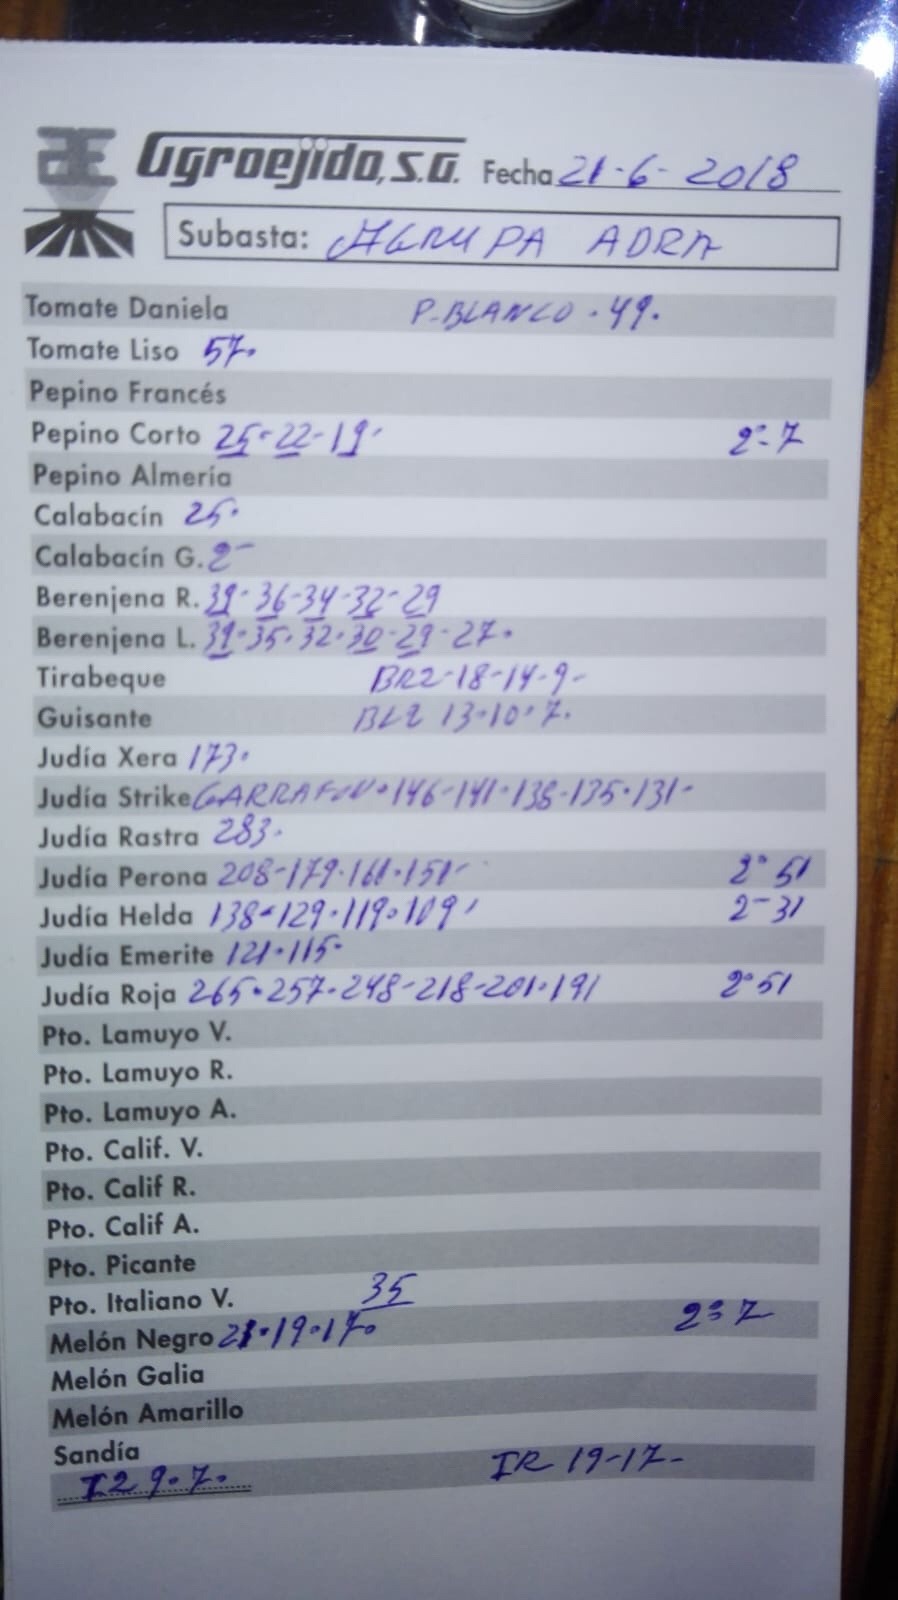 Agroejido, S.A. Fecha 21-6-2018
Subasta: AGRUPA ADRA
Tomate Daniela P.BLANCO.49.
Tomate Liso 57.
Pepino Francés
Pepino Corto 25-22-19- 2ª-7
Pepino Almería
Calabacín 25.
Calabacín G. 2-
Berenjena R. 39-36-34-32-29
Berenjena L. 39-35.32.30-29-27.
Tirabeque BR2-18-14-9-
Guisante BL2 13.10.7.
Judía Xera 173.
Judía Strike GARRAFON.146-141-138-135.131-
Judía Rastra 283.
Judía Perona 208-179.161.151- 2ª 51
Judía Helda 138-129.119.109- 2-31
Judía Emerite 121.115-
Judía Roja 265.257.248-218-201.191 2ª51
Pto. Lamuyo V.
Pto. Lamuyo R.
Pto. Lamuyo A.
Pto. Calif. V.
Pto. Calif R.
Pto. Calif A.
Pto. Picante
Pto. Italiano V. 35
Melón Negro 21.19.17. 2ª 7
Melón Galia
Melón Amarillo
Sandía
I2 9.7. IR 19-17-